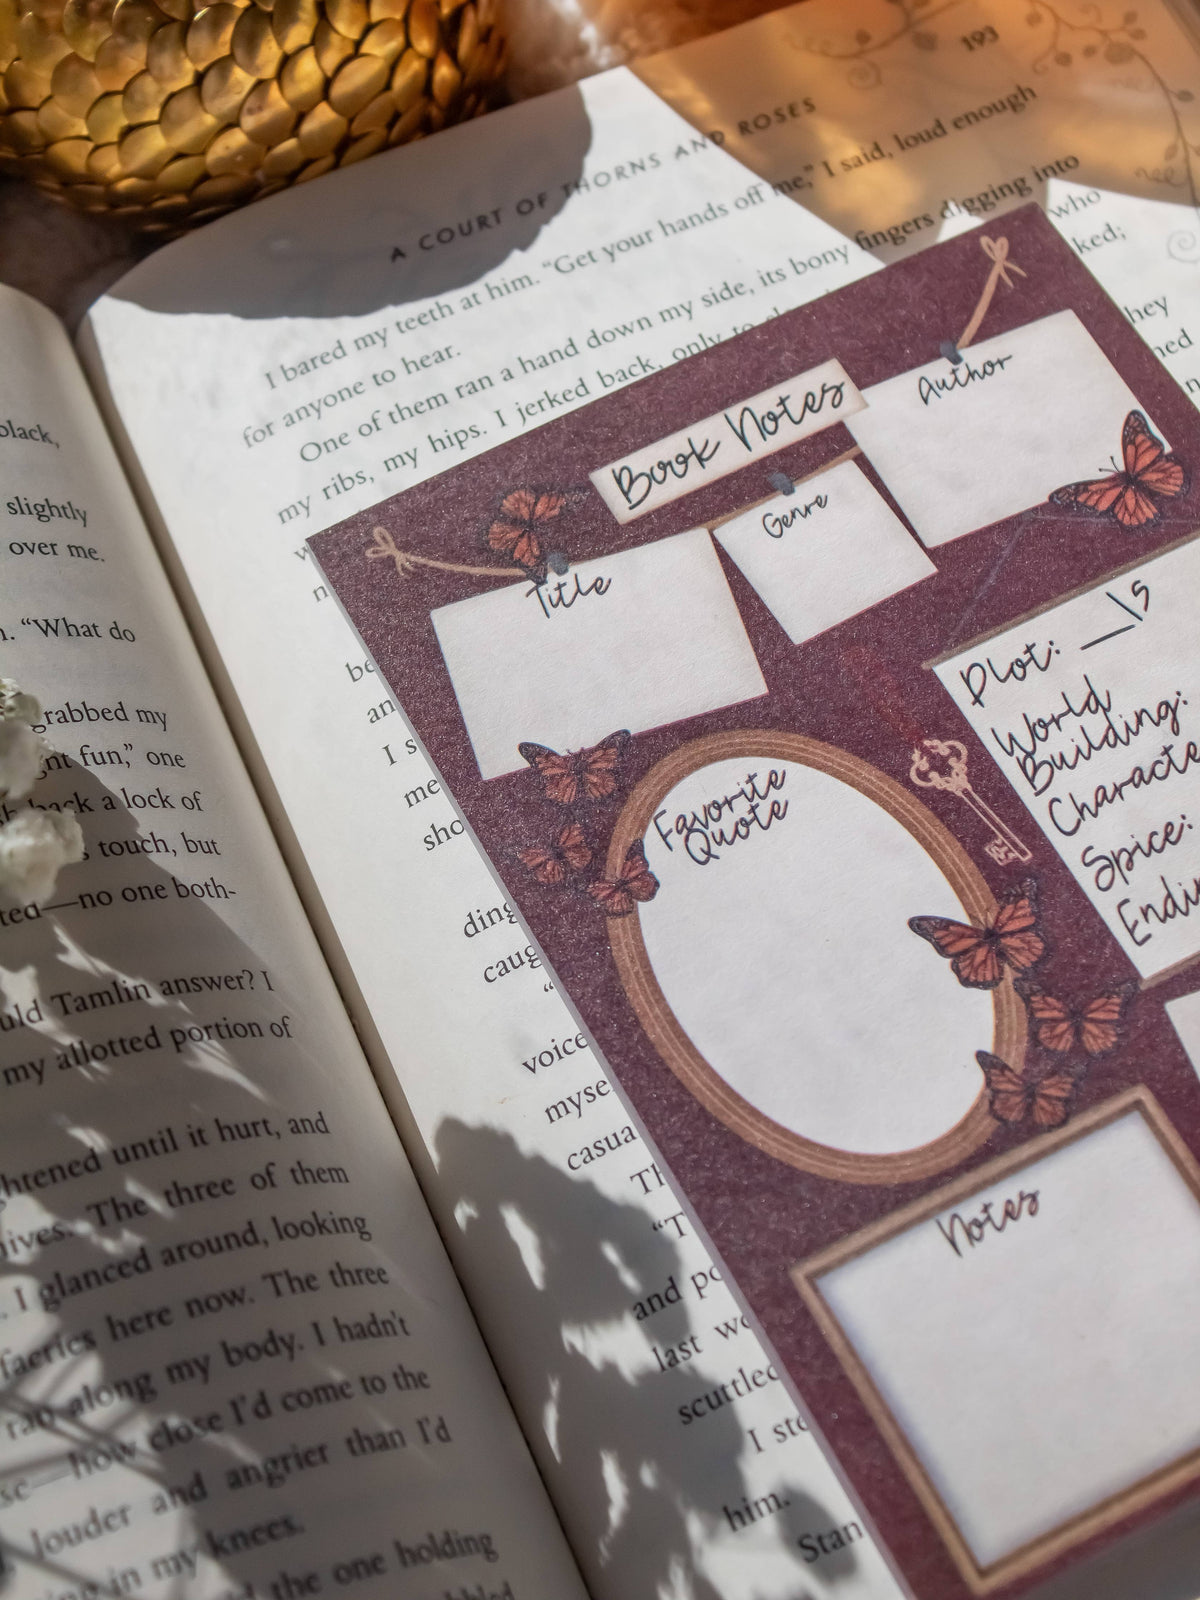 black,
slightly
over me.
“What do
grabbed my
fun,” one
back a lock of
touch, but
ted—no one both-
Tamlin answer? I
my allotted portion of
until it hurt, and
The three of them
I glanced around, looking
faeries here now. The three
ran along my body. I hadn't
how close I'd come to the
louder and angrier than I'd
in my knees.
the one holding
193
A COURT OF THORNS AND ROSES
I bared my teeth at him. “Get your hands off me,” I said, loud enough
for anyone to hear.
One of them ran a hand down my side, its bony fingers digging into
my ribs, my hips. I jerked back, only to
who
voice
and
last
him.
Stan
Book Notes
Author
Genre
Title
Plot: __/5
World
Building:
Characte
Spice:
Endin
Favorite
Quote
Notes